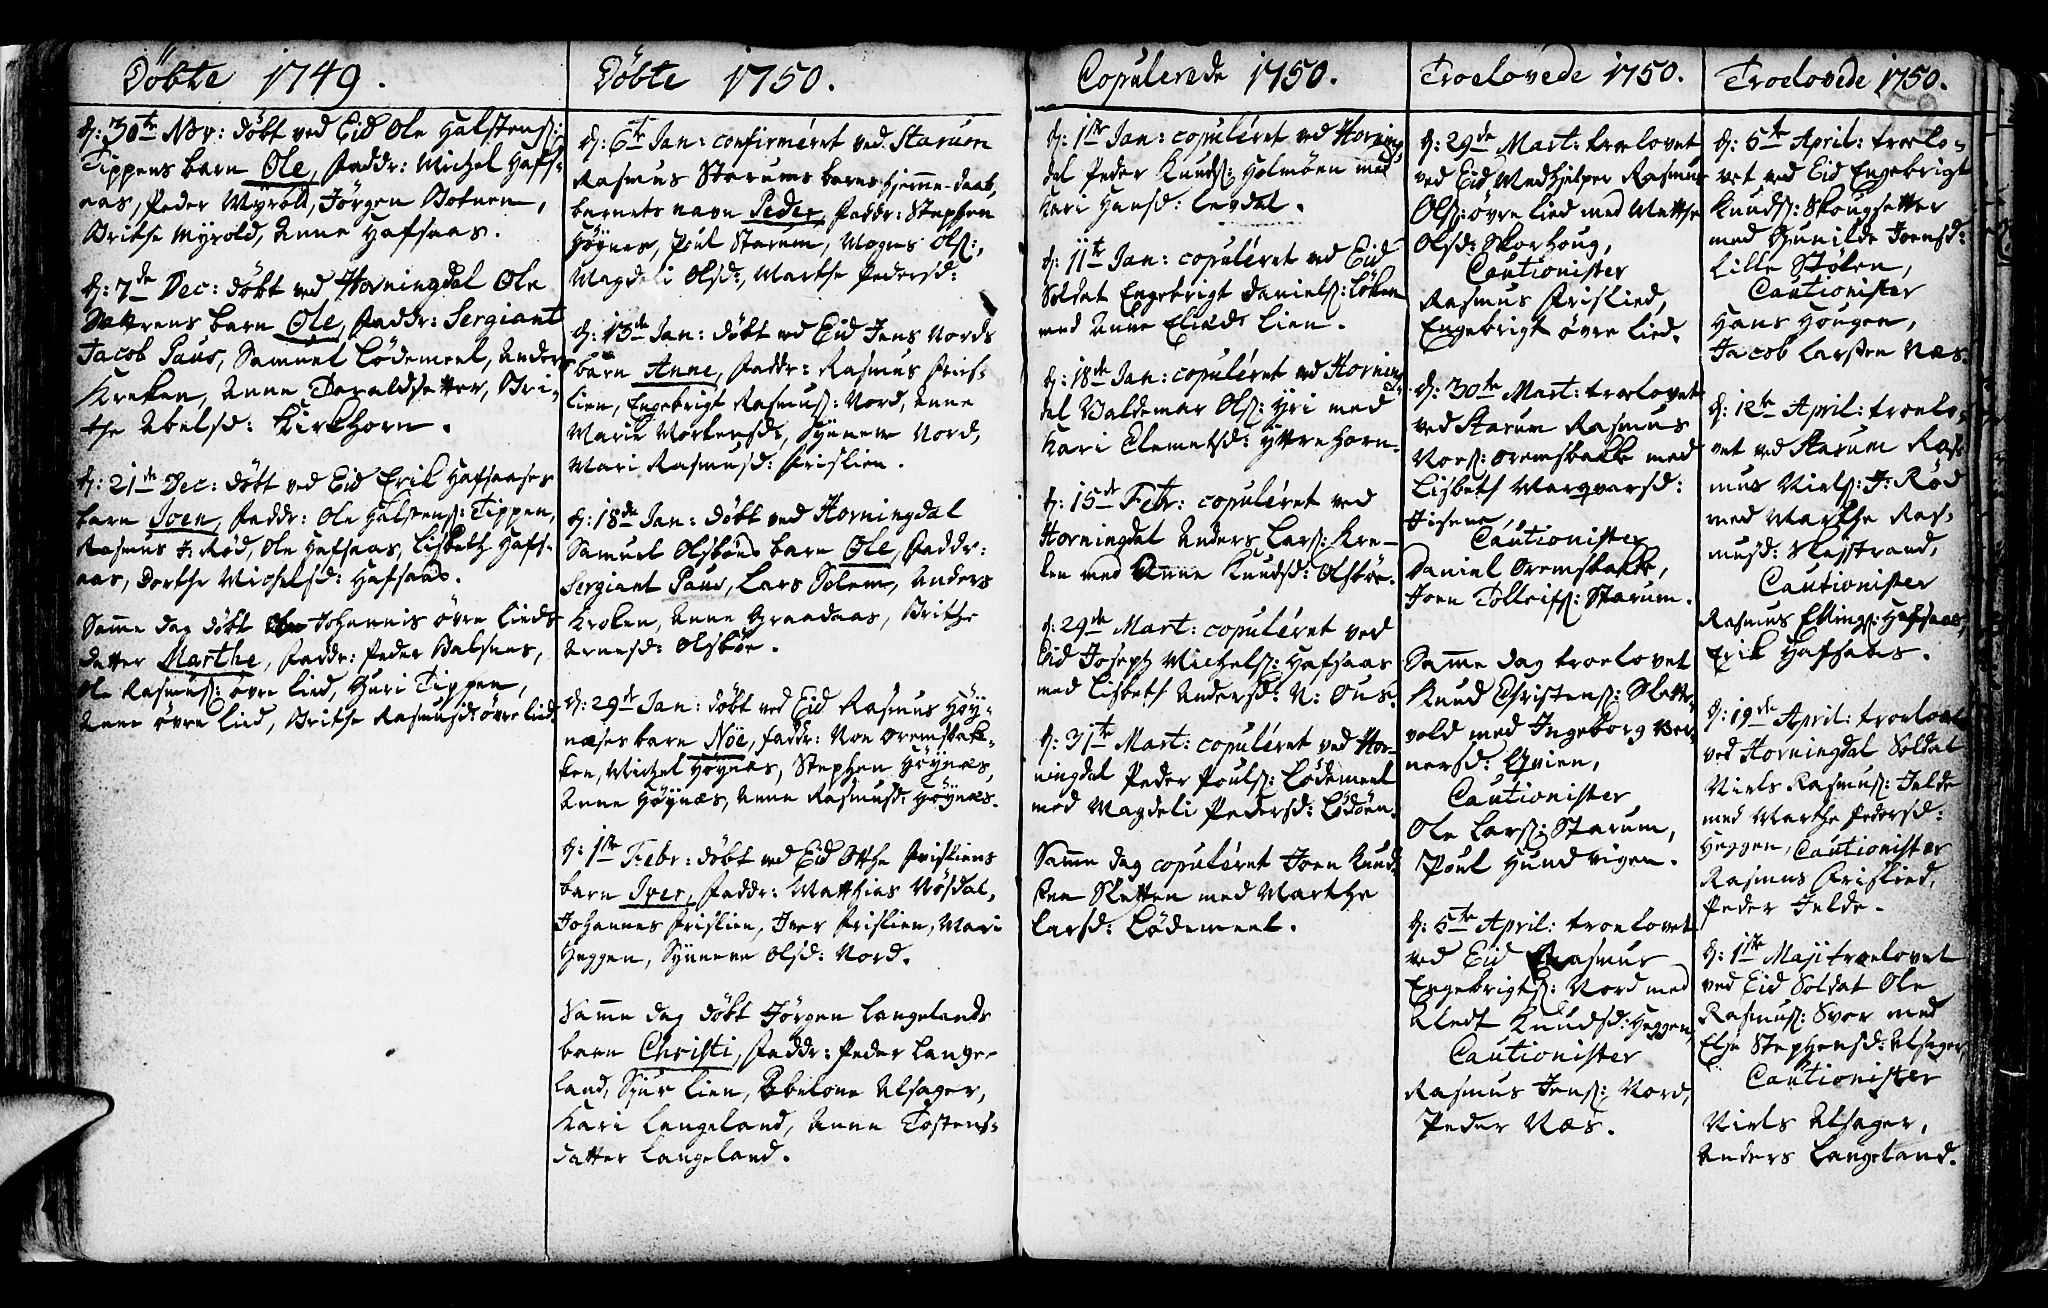 Döbte 1749.
d: 30te Nov: döbt ved Eid Ole Halstens:
Tippens barn Ole, Faddr: Michel Hafs-
aas, Peder Myrold, Jörgen Botnen,
Brithe Myrold, Anne Hafsaas.
d: 7de Dec: döbt ved Horningdal Ole
Sættrens barn Ole, Faddr: Sergiant
Jacob Paus, Samuel Lödemeel, Anders
Kroken, Anne Taraldsetter, Bri-
the Abelsd: Kirkhorn.
d: 21de Dec: döbt ved Eid Erik Hafsaases
barn Joen, Faddr: Ole Halstens: Tippen,
Rasmus J: Röd, Ole Hafsaas, Lisbeth Hafs-
aas, Dorthe Michelsd: Hafsaas.
Samme dag döbt Johannis övre Lieds
datter Marthe, Faddr: Peder Balsnes,
Ole Rasmus: övre Lied, Guri Tippen,
Anne övre Lied, Brithe Rasmusd: övre Lied.
Döbte 1750.
d: 6te Jan: confirméret ved Staruen
Rasmus Starums barns hjemme-daab,
barnets navn Peder, Faddr: Stephen
Höynes, Poul Starum, Mogns Ols:,
Magdeli Olsd:, Marthe Pedersd:
d: 13de Jan: döbt ved Eid Jens Nords
barn Anne, Faddr: Rasmus Fris-
lien, Engebrigt Rasmus: Nord, Anne
Marie Mortensd:, Synneve Nord,
Mari Rasmusd: Frislien.
d: 18de Jan: döbt ved Horningdal
Samuel Olsböes barn Ole, Faddr:
Sergiant Paus, Lars Solem, Anders
Kroken, Anne Graadaas, Brithe
Arnesd: Olsböe.
d: 29de Jan: döbt ved Eid Rasmus Höy-
næses barn Nöe, Faddr: Noe Oremsbak-
ken, Michel Höynæs, Stephen Höynæs,
Anne Höynæs, Anne Rasmusd: Höynæs.
d: 1ste Febr: döbt ved Eid Frisliens
barn Iver, Faddr: Matthias Nösdal,
Johannes Frislien, Iver Frislien, Mari
Heggen, Synneve Olsd: Nord.
Samme dag döbt Jörgen Langelands
barn Christi, Faddr: Peder Lange-
land, Sjur Lien, Abelone Alsager,
Kari Langeland, Anne Tostens-
datter Langeland.
Copulerede 1750.
d: 1ste Jan: copuléret ved Horning
dal Peder Knuds: Holmöen med
Kari Hansd: Levdal.
d: 11te Jan: copuléret ved Eid
Soldat Engebrigt Daniels: Löken
med Anne Eliæd: Lien.
d: 18de Jan: copuléret ved Horning
dal Waldemar Ols: Yri med
Kari Clemetsd: Yttrehorn.
d: 15de Febr: copuléret ved
Horningdal Anders Lars: Kro-
ken med Anne Knudsd: Olsböe.
d: 29de Mart: copuléret ved
Eid Joseph Michels: Hafsaas
med Lisbeth Andersd: N: Ous.
d: 31te Mart: copuléret ved Hor-
ningdal Peder Pouls: Lödemeel
med Magdeli Pedersd: Lödöen.
Samme dag copuléret Joen Knud-
sen Sletten med Marthe
Larsd: Lödemeel.
Troelovede 1750.
d: 29de Mart: troelovet
ved Eid Medhjelper Rasmus
Ols: övre Lied med Mætthe
Olsd: Skorhoug,
Cautionister
Rasmus Frislied,
Engebrigt övre Lied.
d: 30te Mart: troelovet
ved Starum Rasmus
Noes: Oremsbakke med
Lisbeth Margvarsd:
Cautionister
Daniel Oremsbakke,
Joen Tolleifs: Starum.
Samme dag troelovet
Knud Christens: Slette-
vold med Ingeborg Ver-
nersd: Qvien,
Cautionister
Ole Lars: Starum,
Poul Hundvigen.
d: 5te April: troelovet
ved Eid Rasmus
Engebrigts: Nord med
Aledt Knudsd: Heggen,
Cautionister
Rasmus Jens: Nord,
Peder Næs.
Troelovede 1750.
d: 5te April: troelo-
vet ved Eid Engebrigt
Knuds: Skougsetter
med Gunilde Joensd:
Lille Stölen,
Cautionister
Hans Hougen,
Jacob Larssen Næs.
d: 12te April: troelo-
vet ved Starum Ras-
mus Niels: J: Röd
med Marthe Ras-
musd:
Cautionister
Rasmus Ellings: Hafsaas,
Erik Hafsaas.
d: 19de April: troelovet
ved Horningdal Soldat
Niels Rasmus: Jelde
med Marthe Pedersd:
Heggen, Cautionister
Rasmus Frislied,
Peder Jelde.
d: 1ste Maji troelovet
ved Eid Soldat Ole
Rasmus: Svor med
Else Stephensd: Alsager,
Cautionister
Niels Alsager,
Anders Langeland.